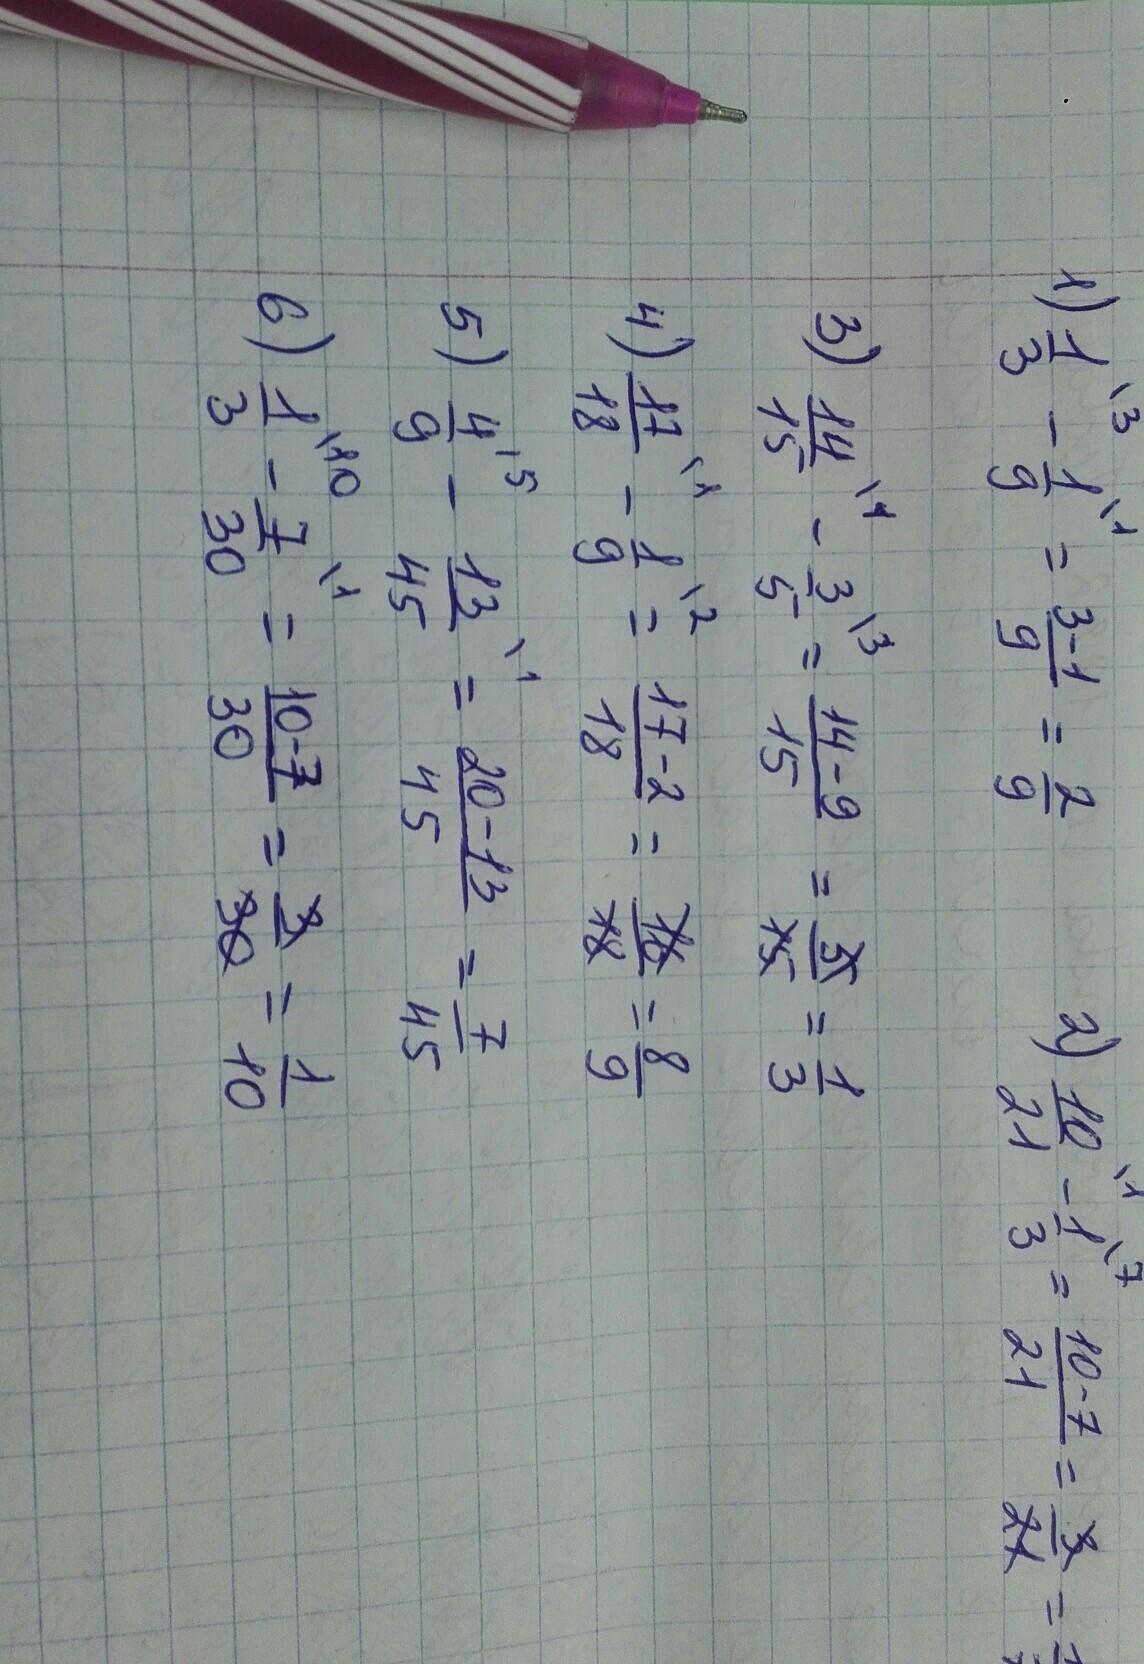 1) 1/3 \3 - 1/9 \1 = 3-1/9 = 2/9 2) 10/21 \1 - 1/3 \7 = 10-7/21 = 3/21 =
3) 14/15 \1 - 3/5 \3 = 14-9/15 = 5/15 = 1/3
4) 17/18 \1 - 1/9 \2 = 17-2/18 = 16/18 = 8/9
5) 4/9 \5 - 13/45 \1 = 20-13/45 = 7/45
6) 1/3 \10 - 7/30 \1 = 10-7/30 = 3/30 = 1/10